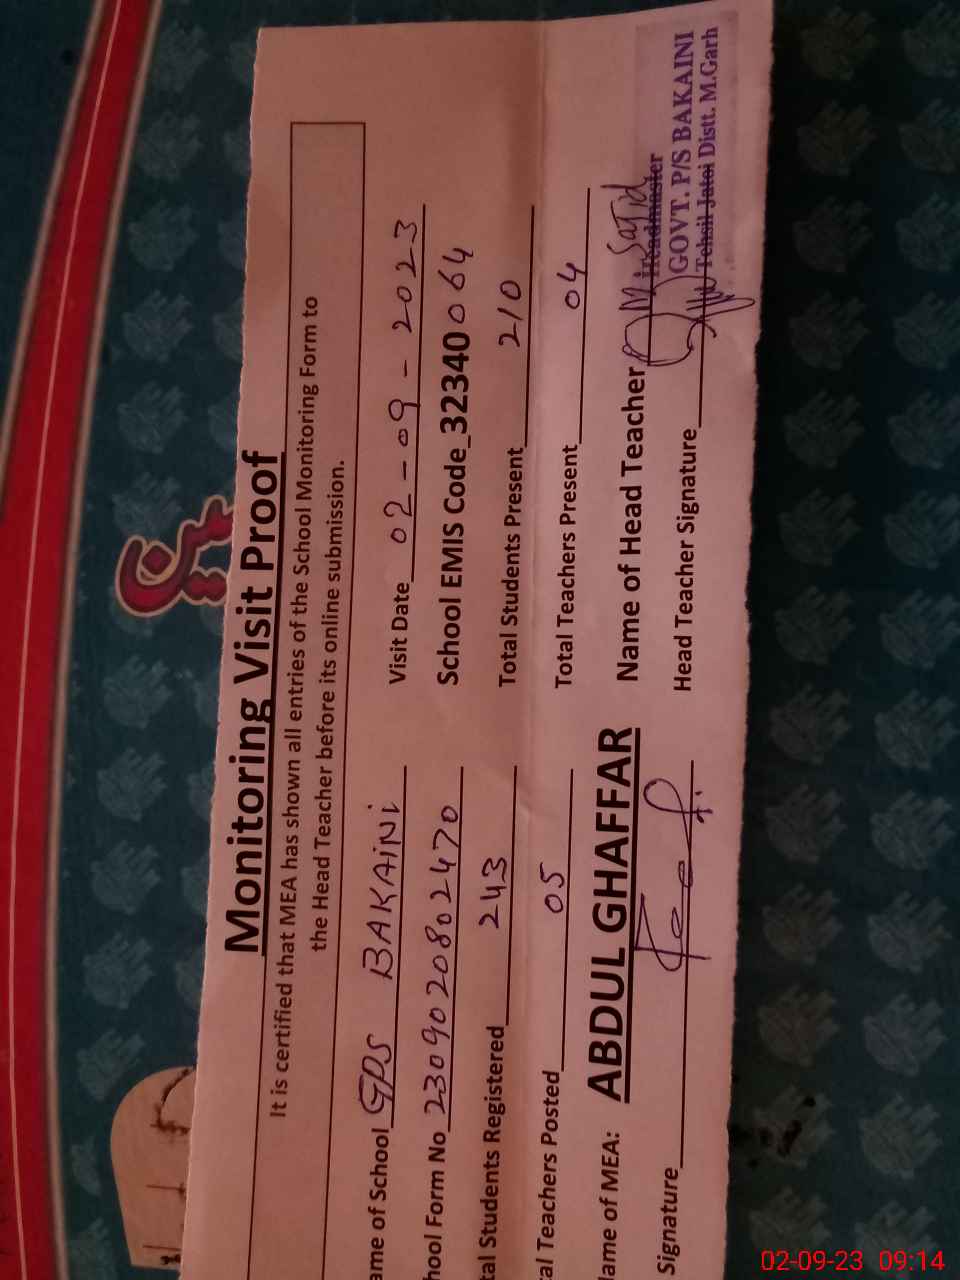 Monitoring Visit Proof
It is certified that MEA has shown all entries of the School Monitoring Form to
the Head Teacher before its online submission.
ame of School GPS BAKAiNi Visit Date 02-09-2023
hool Form No 2309020802470 School EMIS Code_32340064
tal Students Registered 243 Total Students Present 210
al Teachers Posted 05 Total Teachers Present 04
ame of MEA: ABDUL GHAFFAR Name of Head Teacher Sajid
Signature Head Teacher Signature
Headmaster
GOVT. P/S BAKAINI
Tehsil Jatoi Distt. M.Garh
02-09-23 09:14